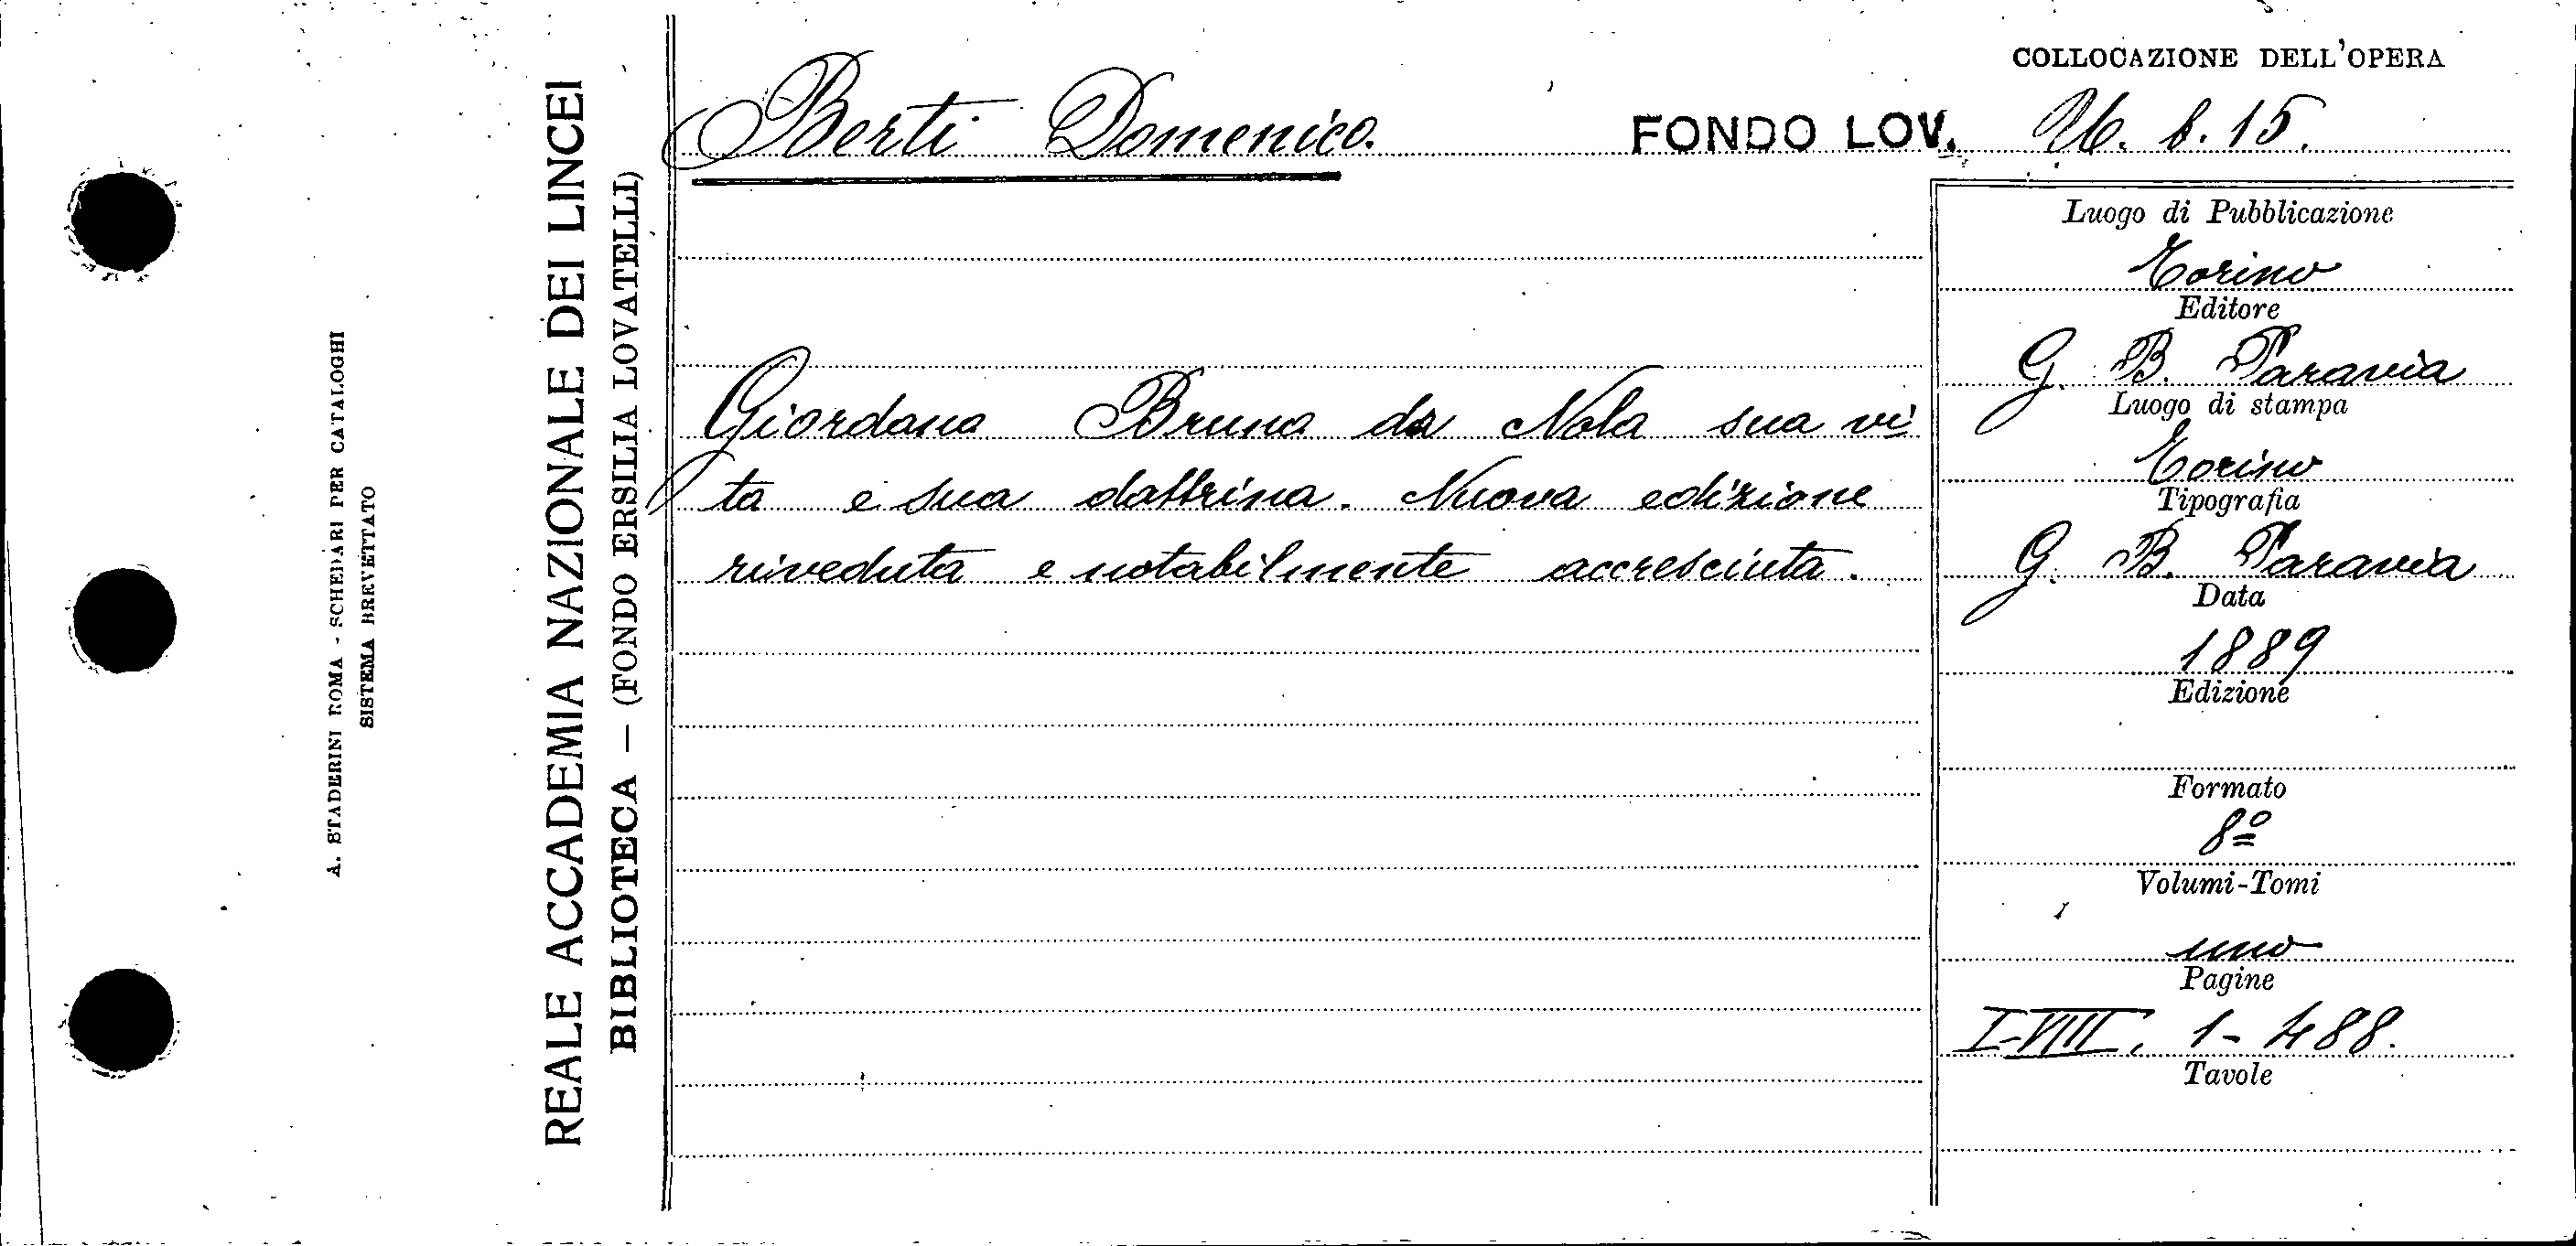 COLLOCAZIONE DELL'OPERA
Berti Domenico.
FONDO LOV. 26. b. 15.
Giordano Bruno da Nola sua vi
ta e sua dottrina. Nuova edizione
riveduta e notabilmente accresciuta.
Luogo di Pubblicazione
Torino
Editore
G. B. Paravia
Luogo di stampa
Torino
Tipografia
G. B. Paravia
Data
1889
Edizione
Formato
8º
Volumi-Tomi
uno
Pagine
I-VIII, 1-488.
Tavole
REALE ACCADEMIA NAZIONALE DEI LINCEI
BIBLIOTECA — (FONDO ERSILIA LOVATELLI)
A. STADERINI ROMA - SCHEDARI PER CATALOGHI
SISTEMA BREVETTATO